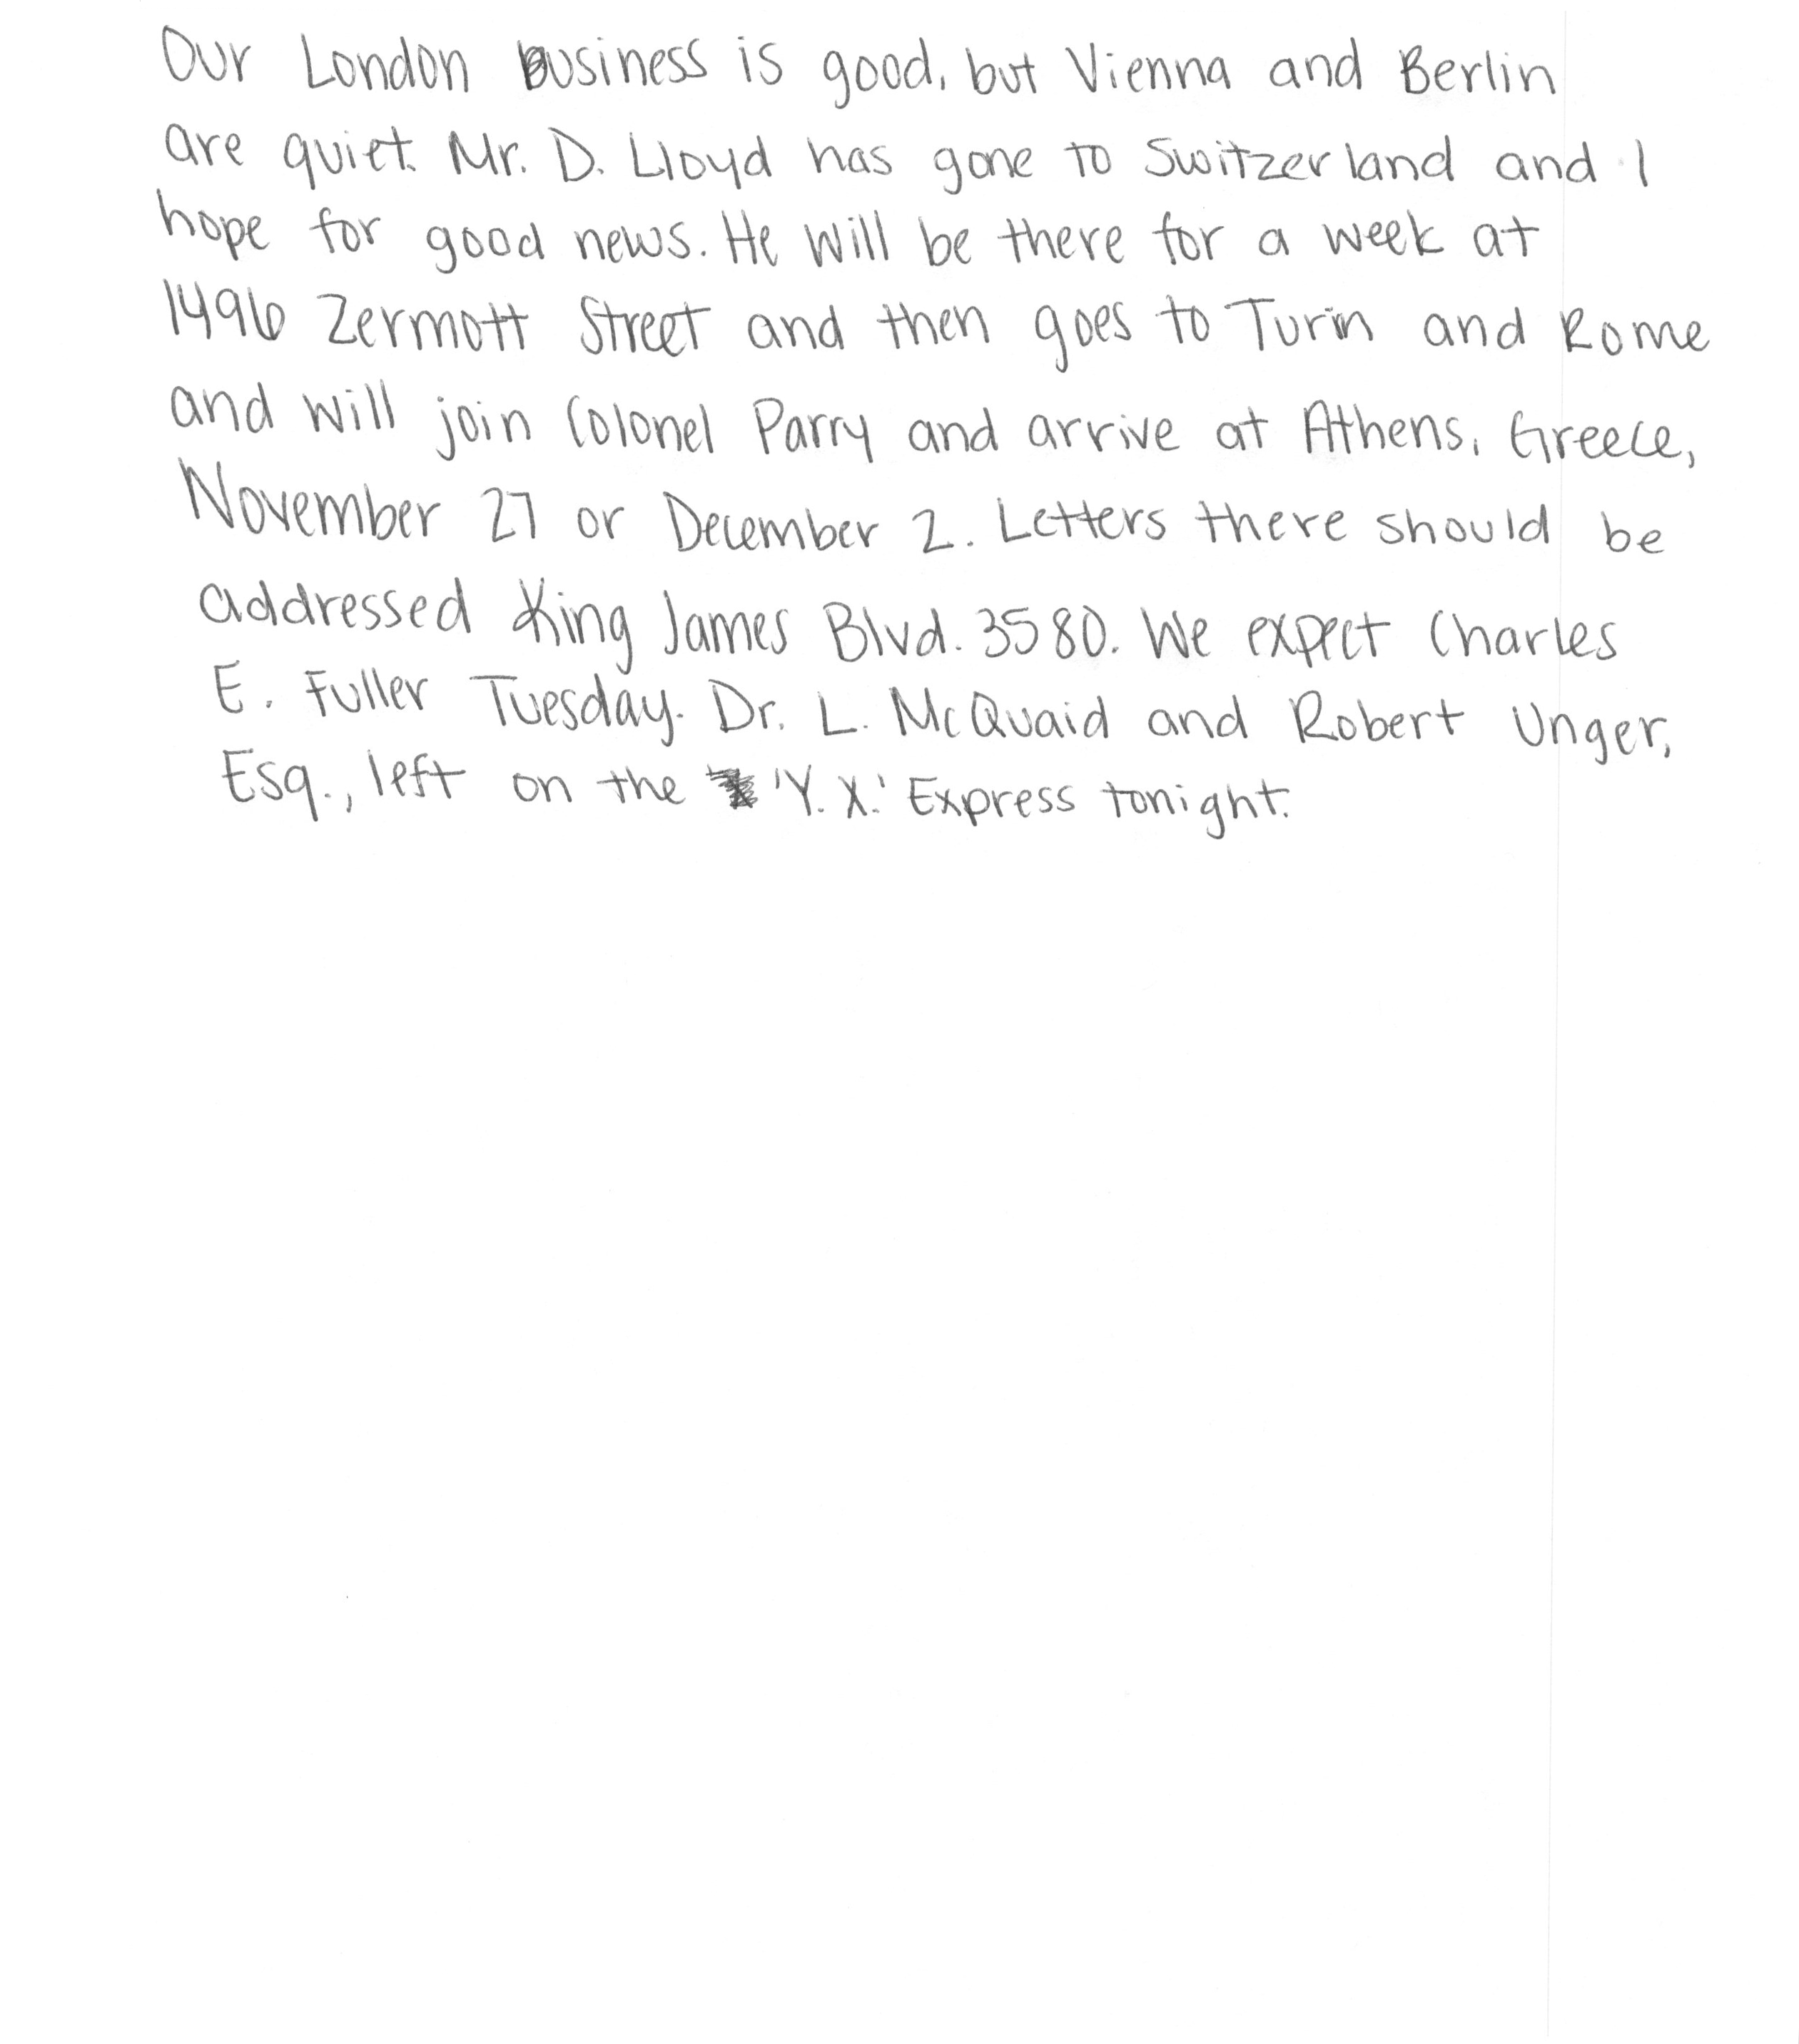 Our London business is good, but Vienna and Berlin
are quiet. Mr. D. Lloyd has gone to Switzerland and I
hope for good news. He will be there for a week at
1496 Zermott Street and then goes to Turin and Rome
and will join Colonel Parry and arrive at Athens, Greece,
November 27 or December 2. Letters there should be
addressed King James Blvd. 3580. We expect Charles
E. Fuller Tuesday. Dr. L. McQuaid and Robert Unger,
Esq., left on the 'Y. X.' Express tonight.